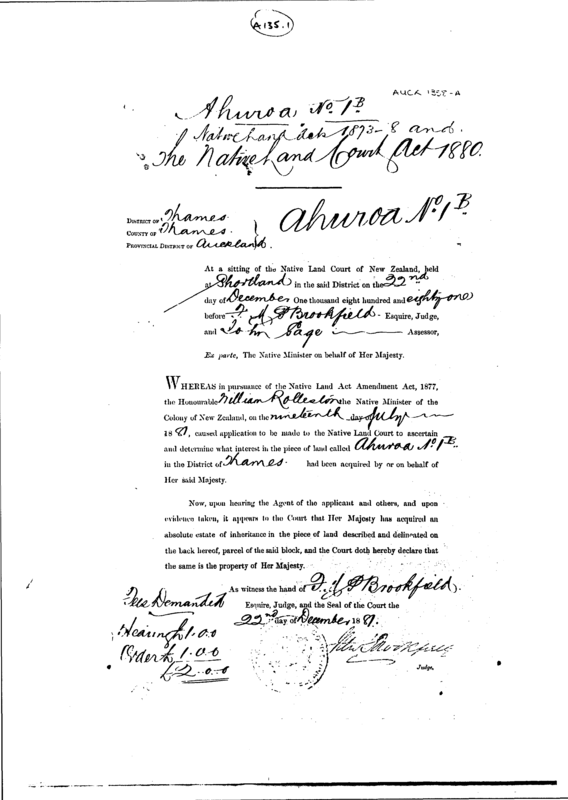 A135.1
AUCK 1358-A
Ahuroa, No. 1B
Native Land Acts 1873-8 and
The Native Land Court Act 1880.
DISTRICT OF Thames
COUNTY OF Thames.
PROVINCIAL DISTRICT OF Auckland.
Ahuroa No. 1B
At a sitting of the Native Land Court of New Zealand, held
at Shortland in the said District on the 22nd
day of December One thousand eight hundred and eighty one
before Brookfield - Esquire, Judge,
and John Page Assessor,
Ex parte, The Native Minister on behalf of Her Majesty.
WHEREAS in pursuance of the Native Land Act Amendment Act, 1877,
the Honourable William Rolleston the Native Minister of the
Colony of New Zealand, on the nineteenth day of July
1881, caused application to be made to the Native Land Court to ascertain
and determine what interest in the piece of land called Ahuroa No. 1B
in the District of Thames. had been acquired by or on behalf of
Her said Majesty.
Now, upon hearing the Agent of the applicant and others, and upon
evidence taken, it appears to the Court that Her Majesty has acquired an
absolute estate of inheritance in the piece of land described and delineated on
the back hereof, parcel of the said block, and the Court doth hereby declare that
the same is the property of Her Majesty.
As witness the hand of Brookfield.
Esquire, Judge, and the Seal of the Court the
22nd day of December 1881.
Fees Demanded
Hearing £1.0.0
Order £1.0.0
£2.0.0
Brookfield
Judge.